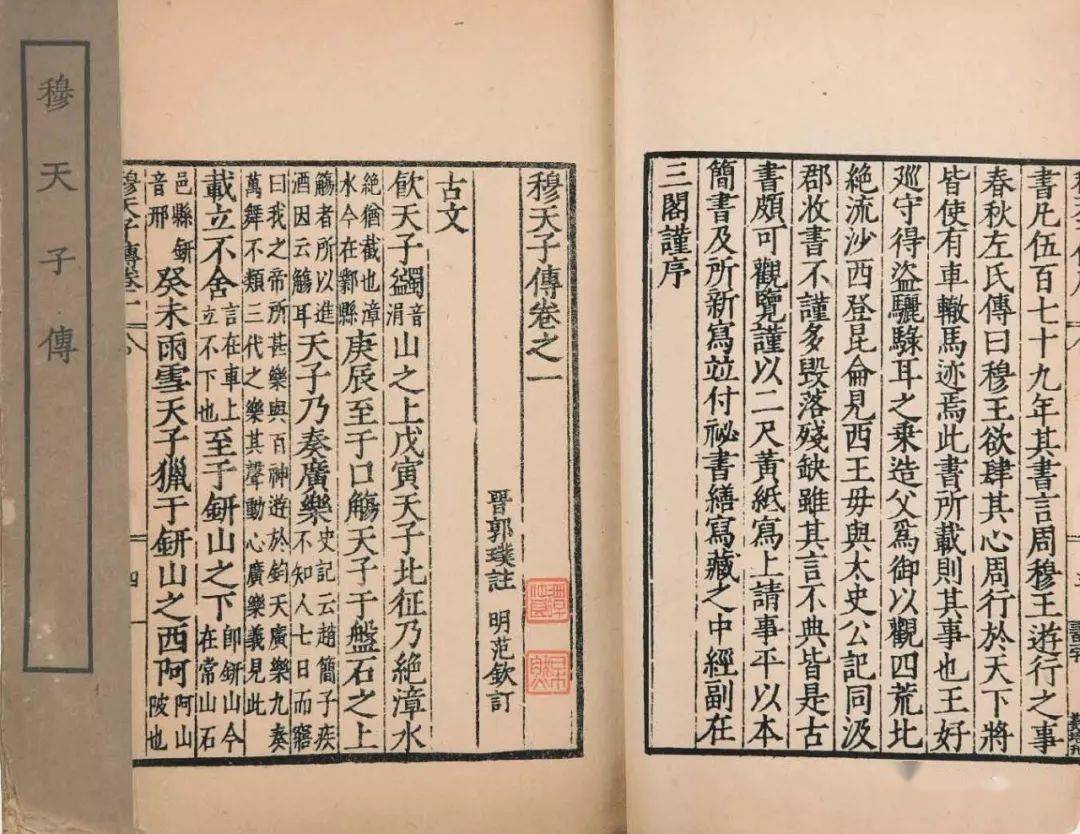 穆天子傳
書凡伍百七十九年其書言周穆王遊行之事
春秋左氏傳曰穆王欲肆其心周行於天下將
皆使有車轍馬迹焉此書所載則其事也王好
巡守得盜驪騄耳之乗造父爲御以觀四荒北
絶流沙西登昆侖見西王毋與太史公記同汲
郡收書不謹多毁落殘缺雖其言不典皆是古
書頗可觀覽謹以二尺黃紙寫上請事平以本
簡書及所新寫並付祕書繕寫藏之中經副在
三閣謹序
穆天子傳卷之一
晉郭璞註 明范欽訂
古文
飮天子蠲音涓山之上戊寅天子北征乃絶漳水
絶猶截也漳水今在鄴縣庚辰至于口觴天子于盤石之上
觴者所以進酒因云觴耳天子乃奏廣樂史記云趙簡子疾不知人七日而寤
曰我之帝所甚樂與百神遊於鈞天廣樂九奏萬舞不類三代之樂其聲動心廣樂義見此
載立不舍言在車上立不下也至于鈃山之下即鈃山今在常山石
邑縣鈃音邢癸未雨雪天子獵于鈃山之西阿阿山陂也
穆天子傳卷一 四